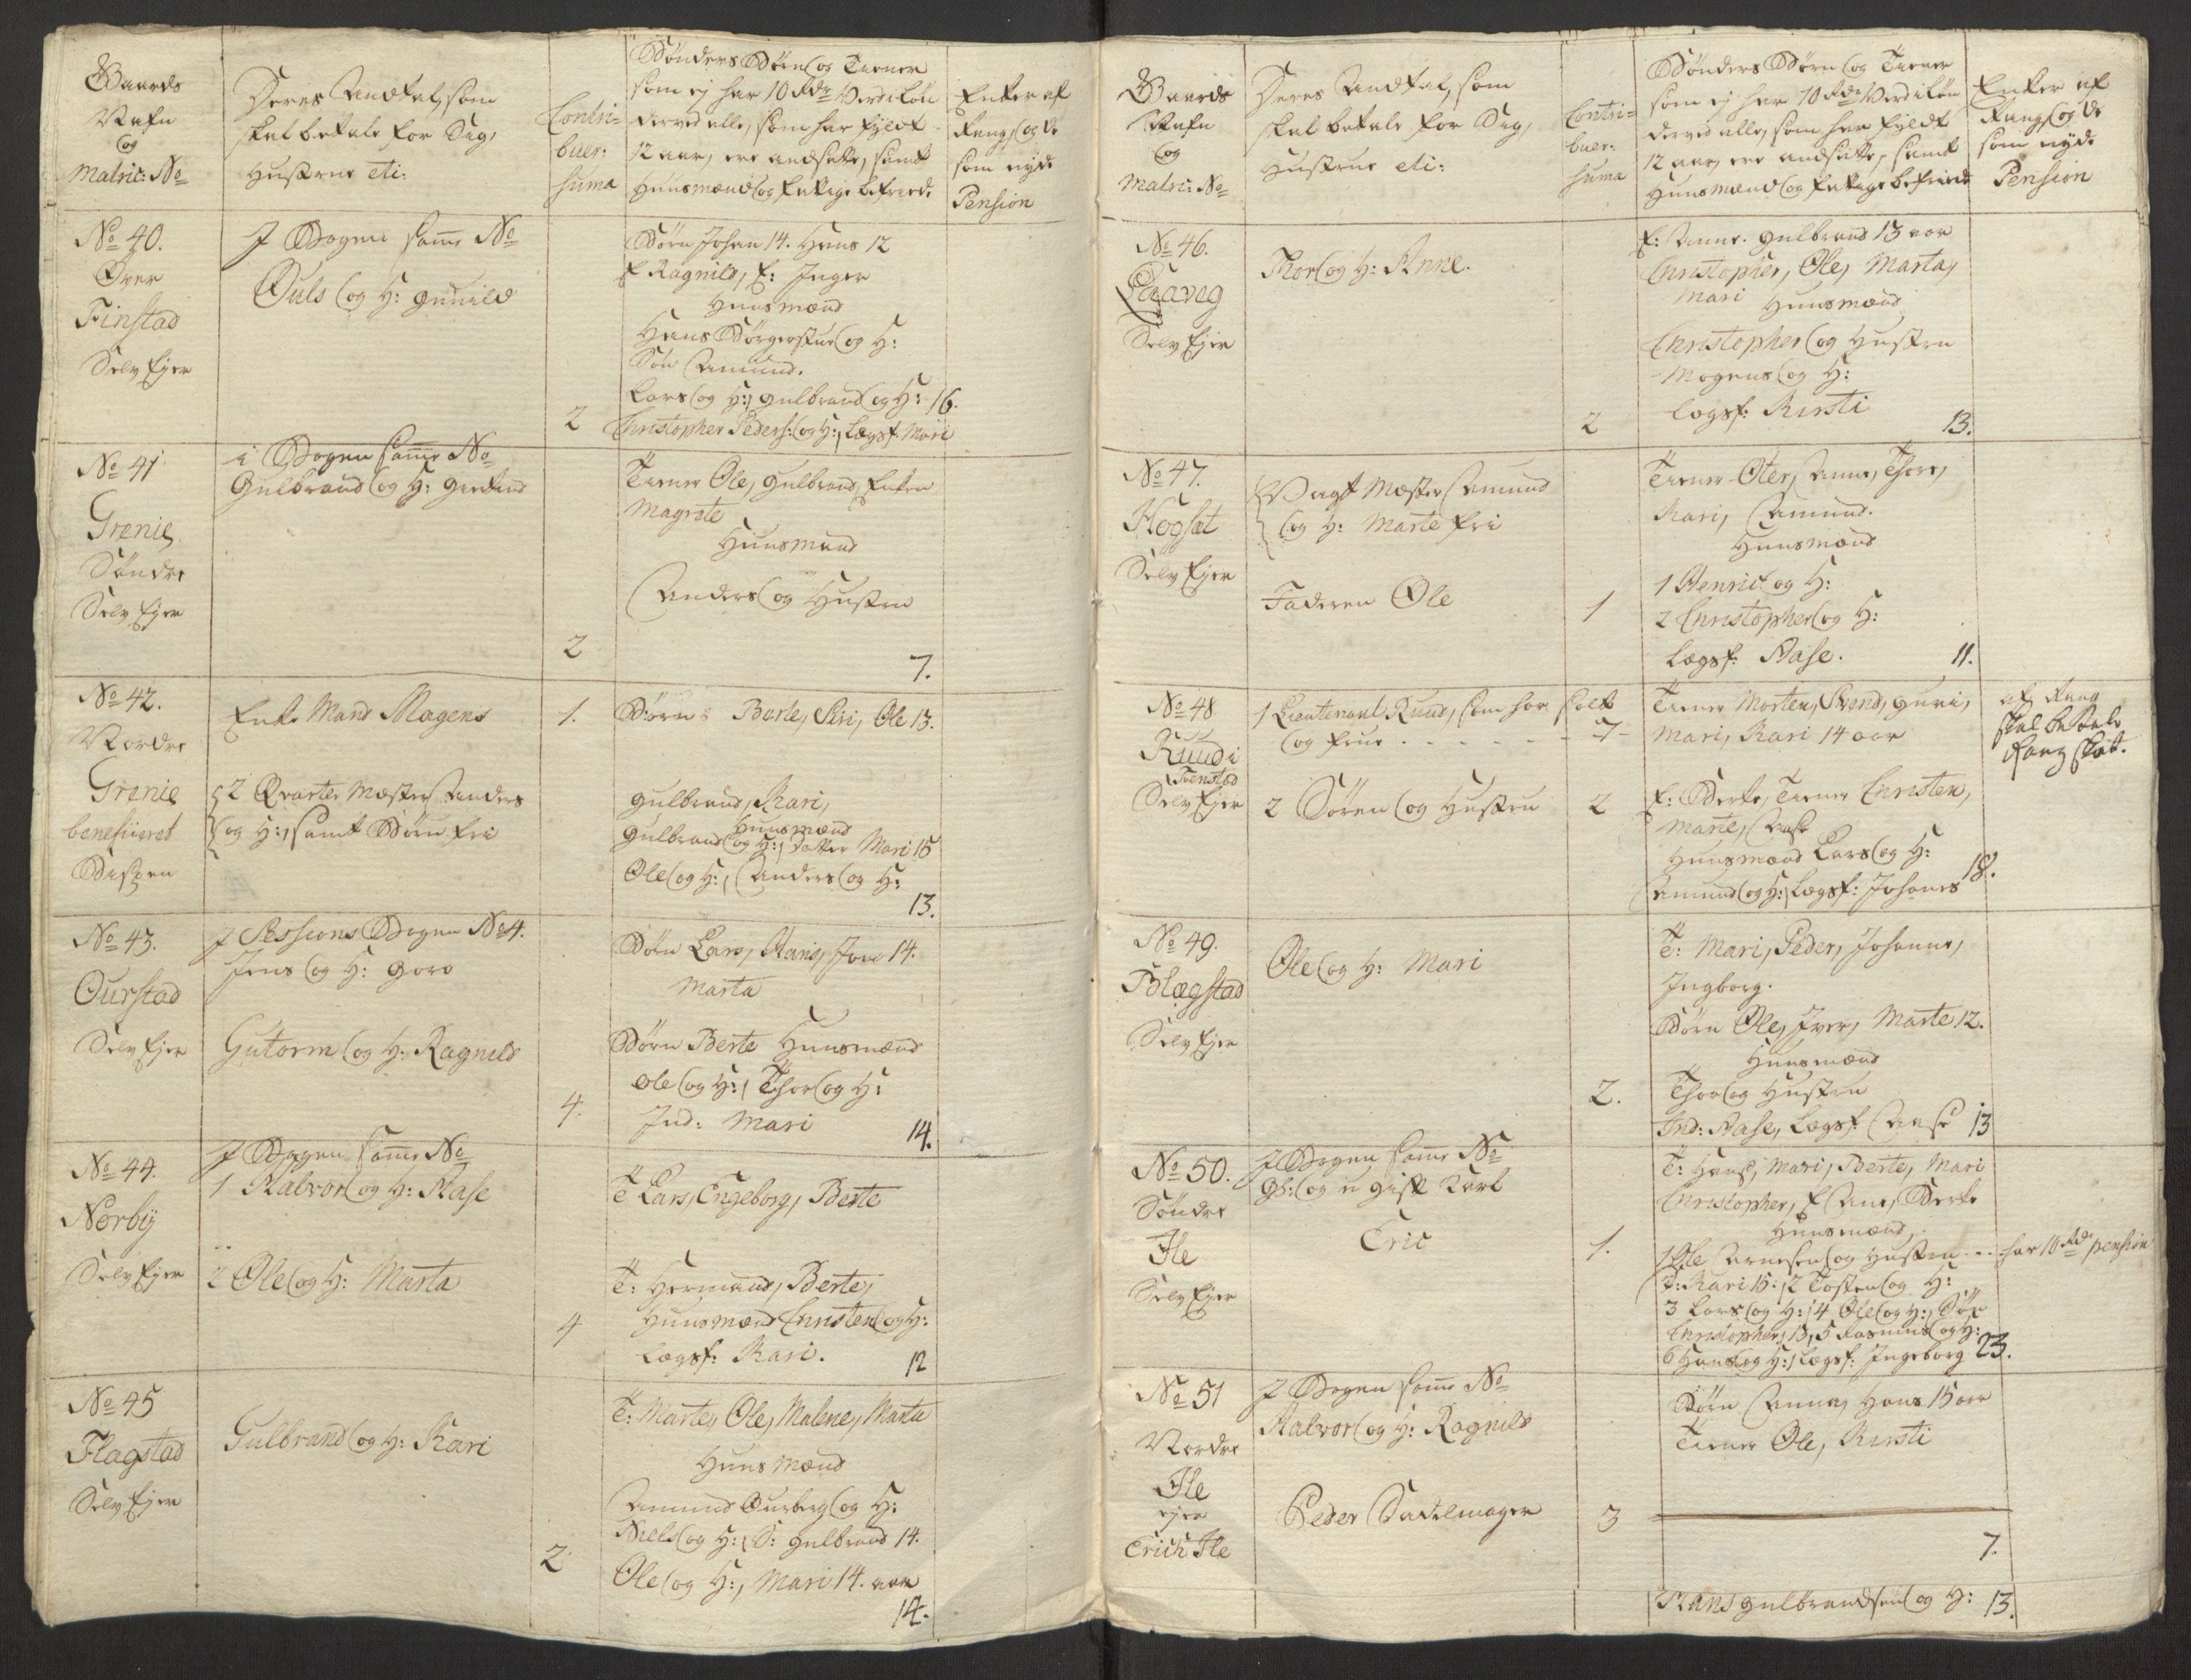 Gaards
Nafn
og
Matric: No
Deres Andtal, som
skal betale for Sig,
Hustrue etc:
Contri-
buer:
Suma
Bønders Børn og Tiener
som ej har 10 Rdr Verdi løn
derved alle, som har fyldt
12 aar, ere andsatte, samt
Huusmænd og fattige befriede
Enker af
Rang, og de
som nyde
Pension
No 40.
Øver
Finstad
Selv Ejer
I Bogen samme No
Øuls og H: Gunild
2
Børn Johan 14. Hans 12
E Ragnild, E: Inger
Huusmænd
Hans Børgerstue og H:
Søn Amund.
Lars og H:, Gulbrand og H: 16.
Christopher Peders: og H:, Lægsf. Mari
No 41
Grenie
Søndre
Selv Ejer
i Bogen samme No
Gulbrand og H:
2
Tiener Ole, Gulbrand, Enken
Magrete
Huusmand
Anders og Hustru
7.
No 42.
Nordre
Grenie
beneficeret
Dispen
Enke Mand Mogens
2 Qvarter Mæster Anders
og H:, samt Børn fri
1.
Børn: Berte, Siri, Ole 13.
Gulbrand, Kari,
Huusmænd
Gulbrand og H:, Datter Mari 15
Ole og H:, Anders og H:
13.
No 43.
Ourstad
Selv Ejer
I Sessions Bogen No 4.
Jens og H: Goro
Gutorm og H: Ragnild
4.
Børn Lars, Haris, Joen 14.
Marta
Børn Berte Huusmænd
Ole og H:, Thor og H:
Ind: Mari
14.
No 44.
Nørby
Selv Ejer
I Bogen samme No
1 Halvor og H: Aase
2 Ole og H: Marta
4
T Lars, Engeborg, Berte
T: Hermand, Berte,
Huusmænd Christen og H:
Lægsf: Kari.
12
No 45
Flagstad
Selv Ejer
Gulbrand og H: Kari
2
T: Marte, Ole, Malene, Marta
Huus Mænd
Amund Ourberg og H:
Niels og H:, S: Gulbrand 14.
Ole og H:, Mari 14. aar
14.
Gaards
Nafn
og
Matric: No
Deres Andtal, som
skal betale for Sig,
Hustrue etc:
Contri-
buer:
Suma
Bønders Børn og Tiener
som ej har 10 Rdr Verdi løn
derved alle, som har fyldt
12 aar, ere andsatte, samt
Huusmænd og fattige befried
Enker af
Rang, og de
som nyde
Pension
No 46.
Selv Ejer
Thor og H: Anne.
2
E: Anne. Gulbrand 13 aar
Christopher, Ole, Marta,
Mari Huusmænd
Christopher og Hustru
Mogens og H:
Lægsf: Kirsti
13.
No 47.
Høgset
Selv Ejer
Vagt Mæster Amund
og H: Marte fri
Faderen Ole
1
Tiener Oter, Anne, Thore,
Kari, Amund.
Huusmænd
1 Henric og H:
2 Christopher og H:
Lægsf: Aase.
11.
No 48
Ruud i
Tenstad
Selv Ejer
1 Lieutenant Ruud, som har
og Frue . . . . . .
2 Søren og Hustru
Folk
7
2
Tiener Morten, Svend, Guri,
Mari, Kari 14 aar
E: Berte, Tiener Christen,
Marte, Aase
Huusmænd Lars og H:
Amund og H:, Lægsf: Johanes
18.
af Rang
skal betale
Rang skat.
No 49.
Blægstad
Selv Ejer
Ole og H: Mari
2.
T: Mari, Peder, Johanne,
Ingborg.
Børn Ole, Iver, Marte 12.
Huusmænd
Thor og Hustru
Ind: Aase, Lægsf. Aase
13
No 50.
Søndre
Ile
Selv Ejer
I Bogen samme No
Gb: og u gift Karl
Eric
1.
T: Hans, Mari, Berte, Mari
Christopher, E Ane, Berte
Huusmænd,
1 Ole Arnesen og Hustru . . . har 10 Rdr pension
D: Kari 15., 2 Tosten og H:
3 Lars og H:, 4 Ole og H:, Søn
Christopher, 13, 5 Rasmus og H:
6 Hans og H:, Lægsf: Ingeborg 23.
No 51
Nordre
Ile
ejer
Erich Ile
I Bogen samme No
Halvor og H: Ragnild
Peder Sadelmager
3
Børn Anne, Hans 15 aar
Tiener Ole, Kirsti
7.
Hans Gulbrandsen og H: 13.